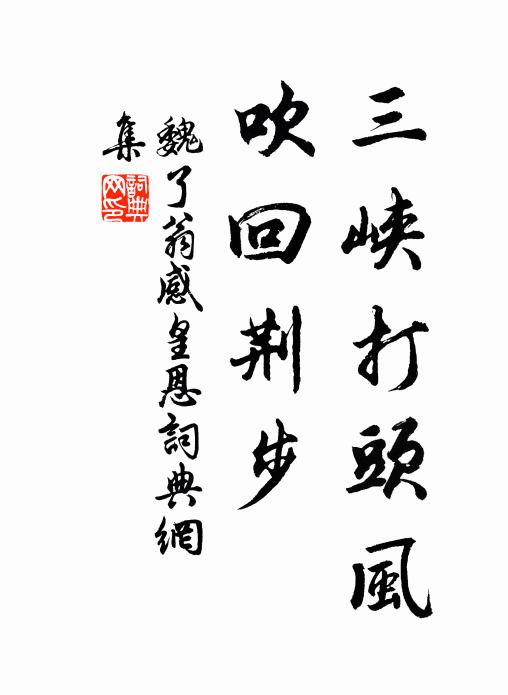 三峽打頭風
吹回荆步
魏了翁感皇恩詞典網
集
詞典
网印